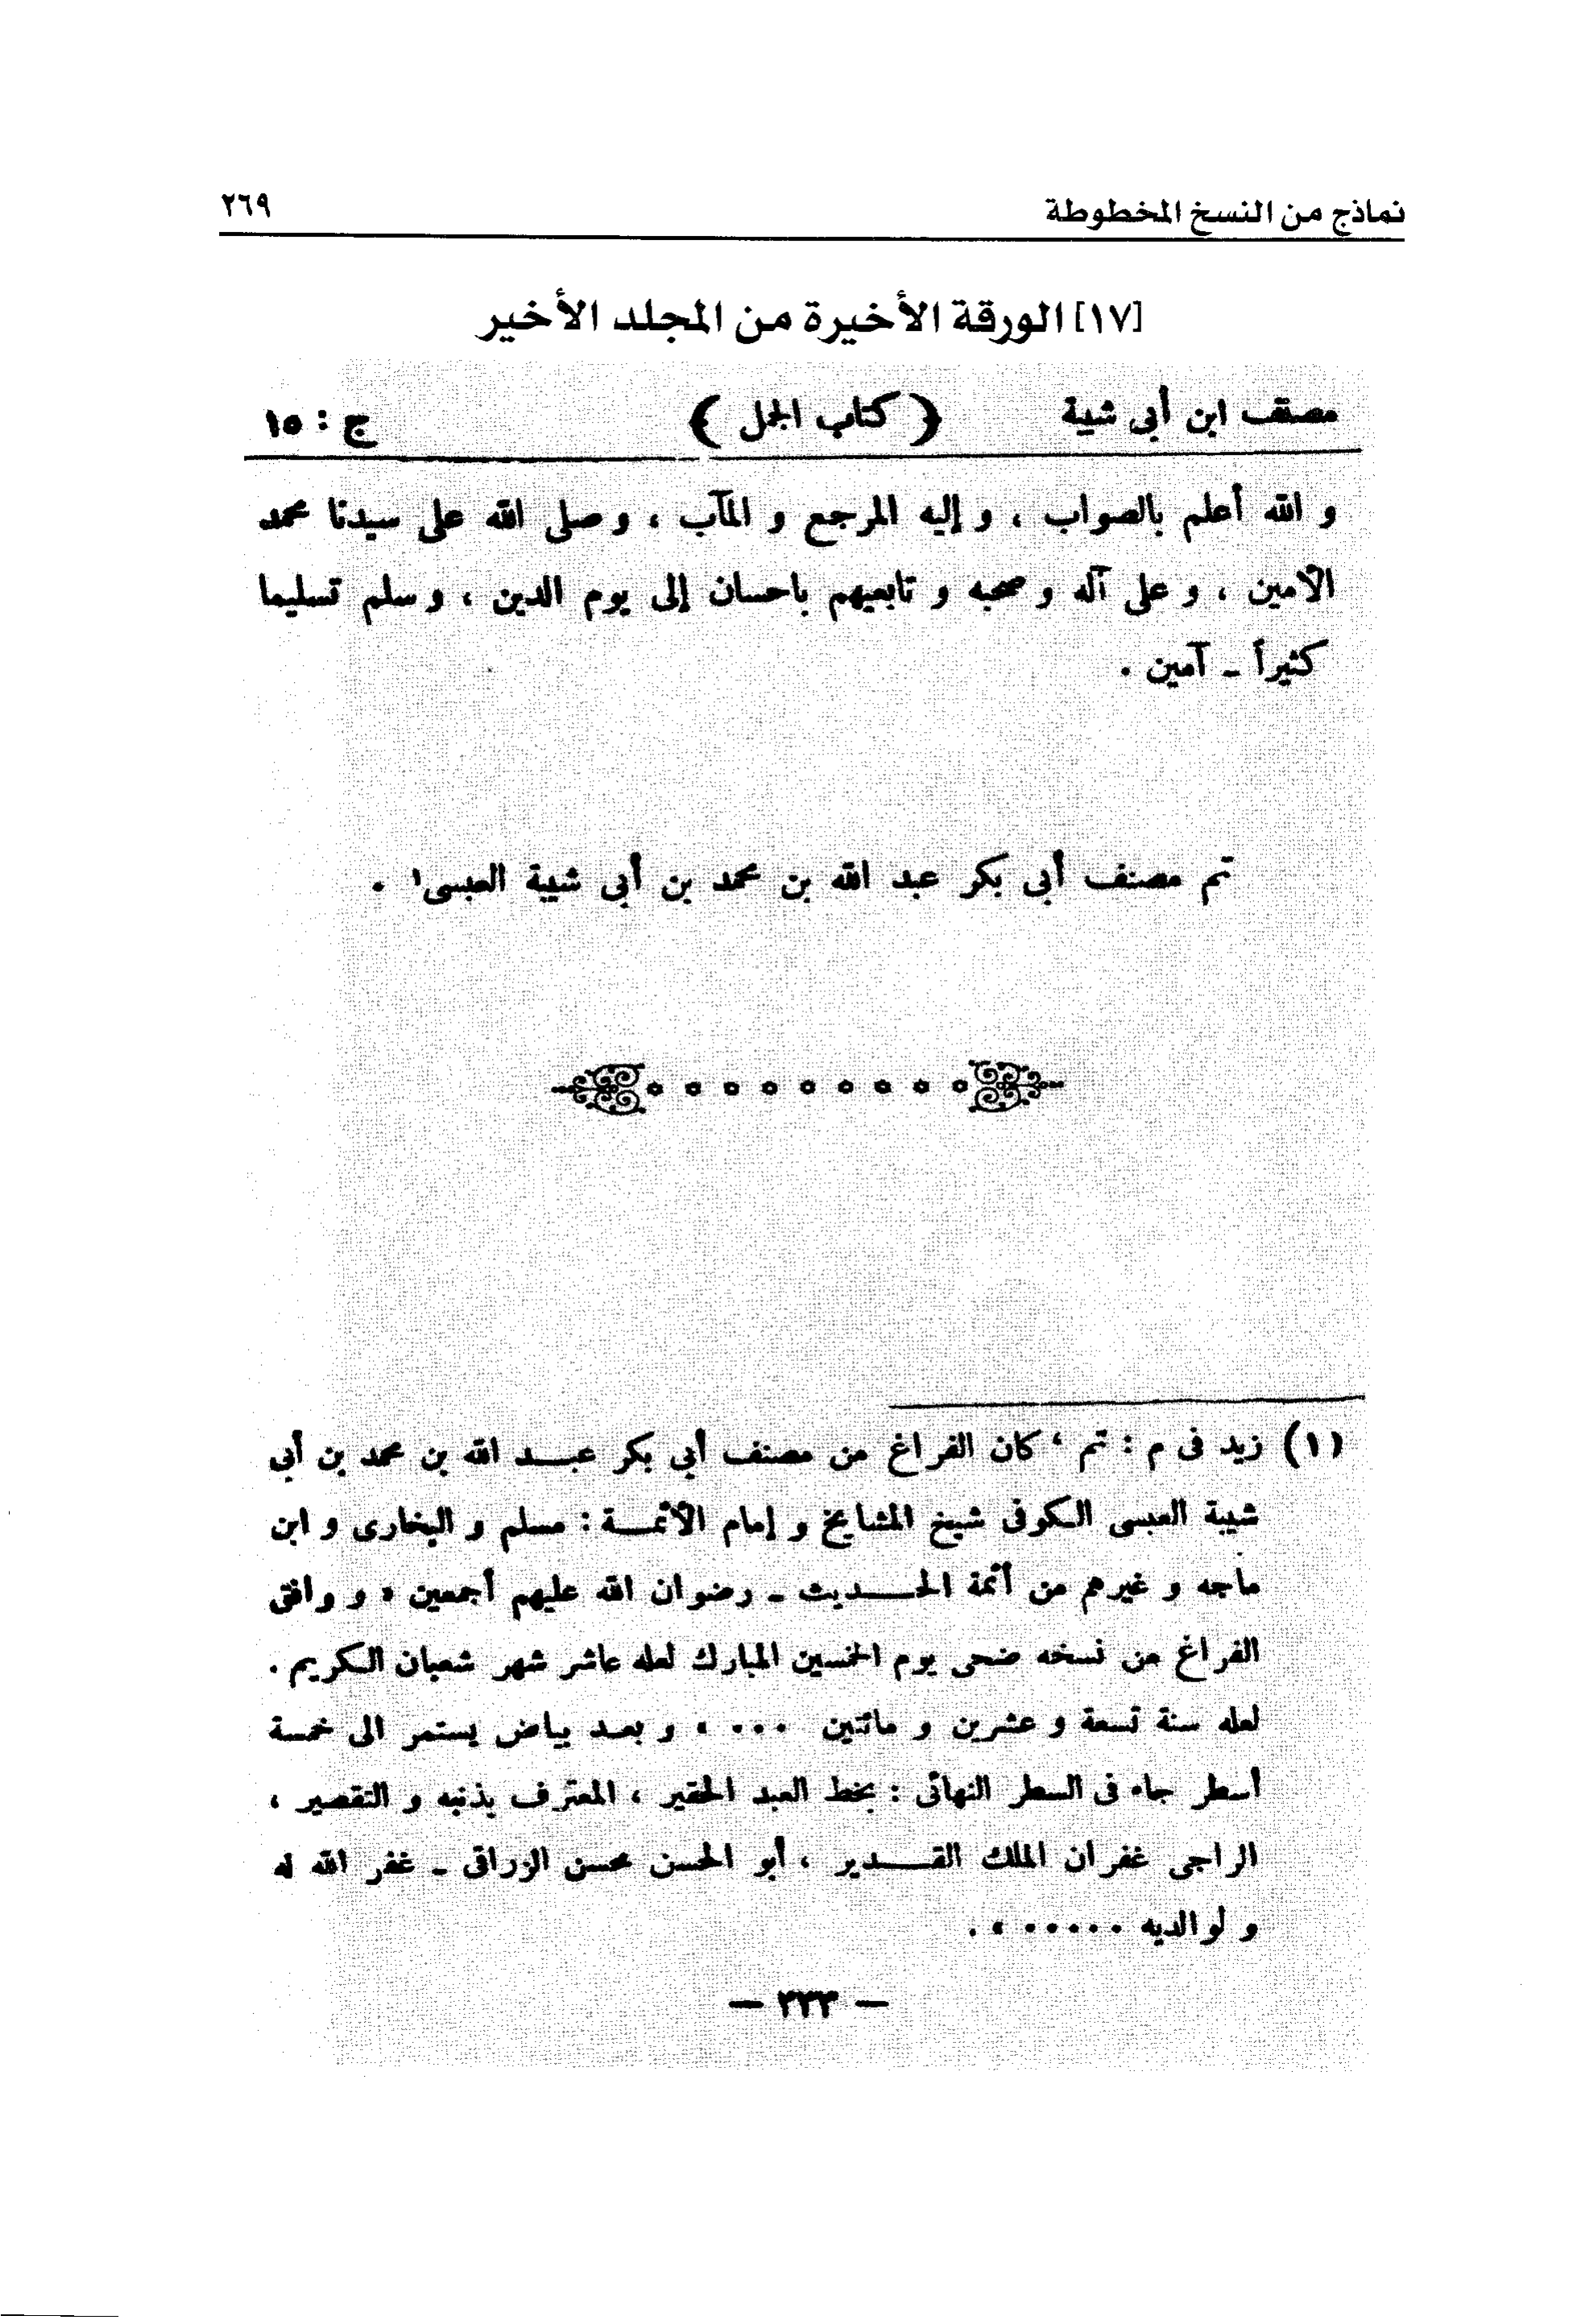 نماذج من النسخ المخطوطة ٢٦٩
[١٧] الورقة الأخيرة من المجلد الأخير
مصنف ابن أبى شيبة ﴿ كتاب الجمل ﴾ ج : ١٥
و الله أعلم بالصواب ، و إليه المرجع و المآب ، و صلى الله على سيدنا محمد
الأمين ، و على آله و صحبه و تابعيهم باحسان إلى يوم الدين ، و سلم تسليما
كثيراً - آمين .
تم مصنف أبى بكر عبد الله بن محمد بن أبى شيبة العبسى١ .
(١) زيد فى م : تم ‘ كان الفراغ من مصنف أبى بكر عبـــد الله بن محمد بن أبى
شيبة العبسى الكوفى شيخ المشايخ و إمام الأئمـــة : مسلم و البخارى و ابن
ماجه و غيرهم من أئمة الحـــديث - رضوان الله عليهم أجمعين « و وافق
الفراغ من نسخه ضحى يوم الخميس المبارك لعله عاشر شهر شعبان الكريم .
لعله سنة تسعة و عشرين و مائتين ... » و بعـد بياض يستمر الى خمسة
أسطر جاء فى السطر النهائى : بخط العبد الحقير ، المعترف بذنبه و التقصير ،
الراجى غفران الملك القـــدير ، أبو الحسن محسن الزراقى - غفر الله له
و لوالديه ..... » .
— ٣٣٣ —